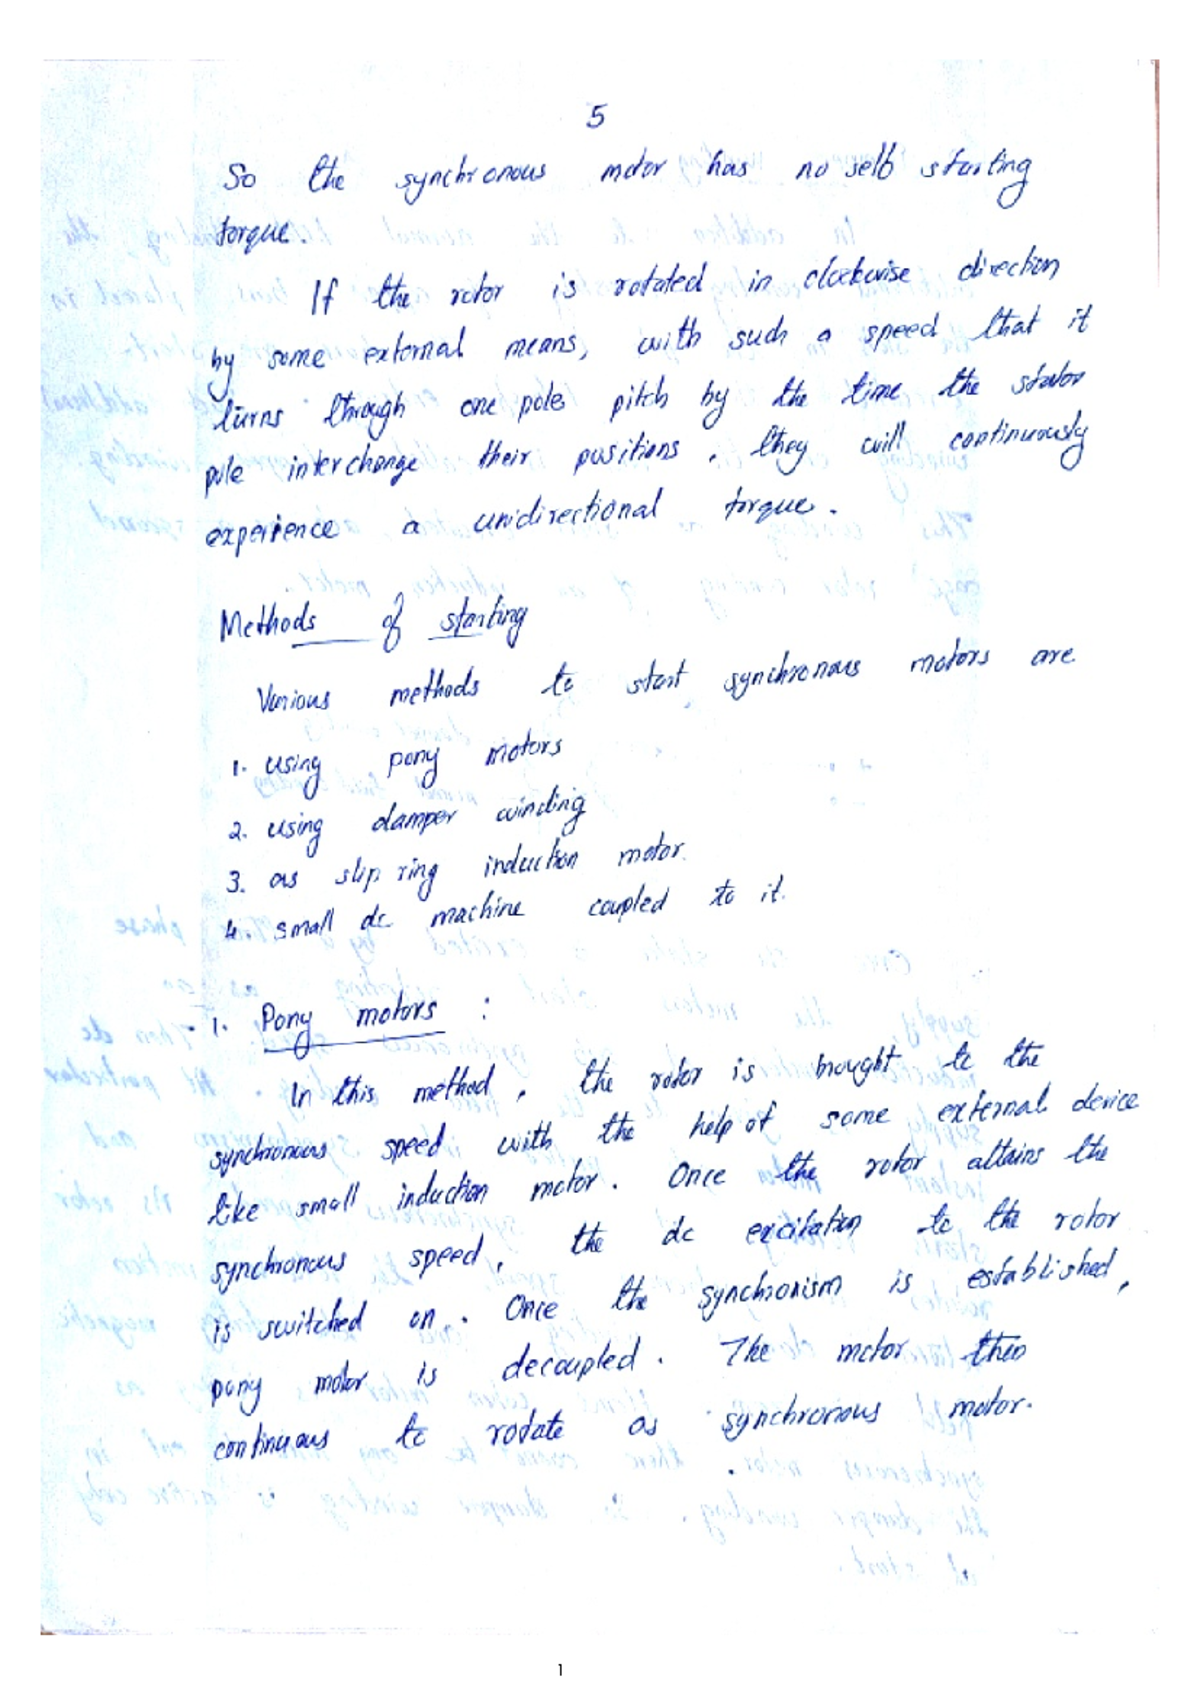 5
So the synchronous motor has no self starting
torque.
If the rotor is rotated in clockwise direction
by some external means, with such a speed that it
turns through one pole pitch by the time the stator
pole interchange their positions, they will continuously
experience a unidirectional torque.
Methods of starting
Various methods to start synchronous motors are
1. using pony motors
2. using damper winding
3. as slip ring induction motor.
4. small dc machine coupled to it.
1. Pony motors :
In this method, the rotor is brought to the
synchronous speed with the help of some external device
like small induction motor. Once the rotor attains the
synchronous speed, the dc excitation to the rotor
is switched on. Once the synchronism is established,
pony motor is decoupled. The motor then
continuous to rotate as synchronous motor.
1